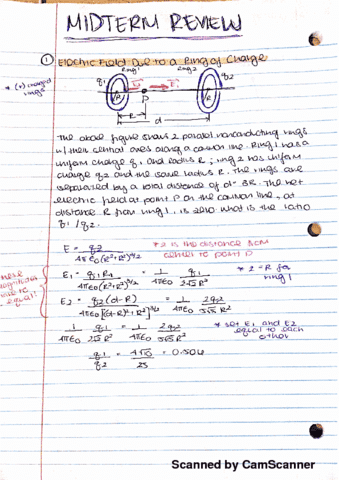 MIDTERM REVIEW
① Electric Field Due to a Ring of Charge
Ring 1 Ring 2
q1 q2
* (+) charged rings
R R
P
R
d
The above figure shows 2 parallel nonconducting rings
w/ their central axes along a common line. Ring 1 has a
uniform charge q1 and radius R; ring 2 has uniform
charge q2 and the same radius R. The rings are
separated by a total distance of d = 3R. The net
electric field at point P on the common line, at
distance R from ring 1, is zero what is the ratio
q1/q2.
E = qz / 4πε0(R²+z²)^3/2 * z is the distance from center to point P
E1 = q1R / 4πε0(R²+R²)^3/2 = 1/4πε0 q1/2√2R² * z = R for ring 1
E2 = q2(d-R) / 4πε0[(d-R)²+R²]^3/2 = 1/4πε0 2q2/5√5R²
magnitudes are to equal!
1/4πε0 q1/2√2R² = 1/4πε0 2q2/5√5R² * set E1 and E2 equal to each other
q1/q2 = 4√10/25 = 0.506
Scanned by CamScanner